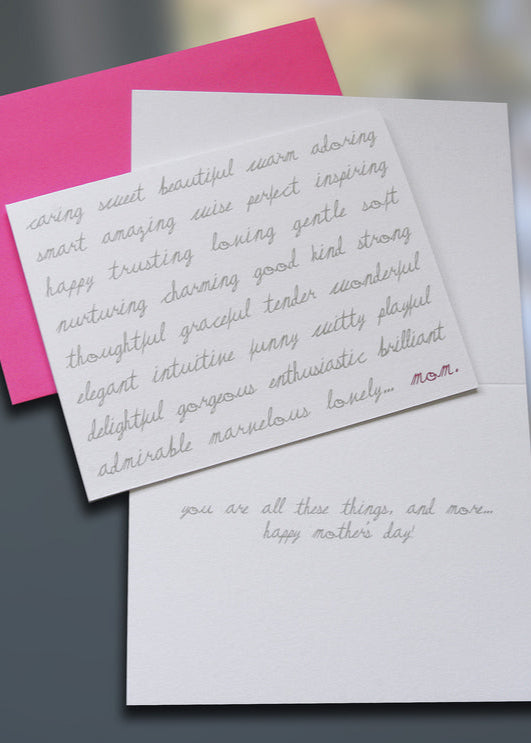 caring sweet beautiful warm adoring
smart amazing wise perfect inspiring
happy trusting loving gentle soft
nurturing charming good kind strong
thoughtful graceful tender wonderful
elegant intuitive funny witty playful
delightful gorgeous enthusiastic brilliant
admirable marvelous lovely... mom.
you are all these things, and more...
happy mother's day!